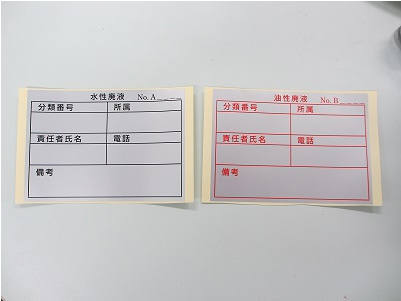 水性廃液 No. A____
分類番号 所属
責任者氏名 電話
備考
油性廃液 No. B____
分類番号 所属
責任者氏名 電話
備考